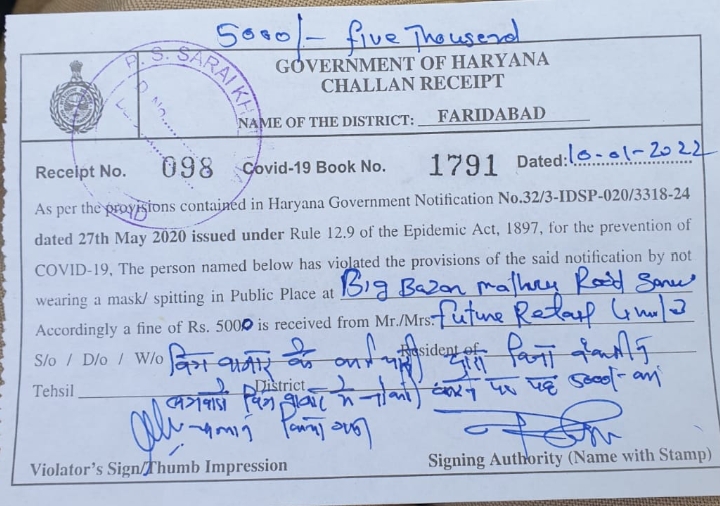 5000/- five Thousend
GOVERNMENT OF HARYANA
CHALLAN RECEIPT
P. S. SARAI KH
NAME OF THE DISTRICT: FARIDABAD
Receipt No. 098 Covid-19 Book No. 1791 Dated: 10-01-2022
As per the provisions contained in Haryana Government Notification No.32/3-IDSP-020/3318-24
dated 27th May 2020 issued under Rule 12.9 of the Epidemic Act, 1897, for the prevention of
COVID-19, The person named below has violated the provisions of the said notification by not
wearing a mask/ spitting in Public Place at Big Bazar Road
Accordingly a fine of Rs. 5000 is received from Mr./Mrs. future Retail
S/o / D/o / W/o बिग बाजार के Resident of द्वारा बिना
Tehsil District बिग बाजार में पर यह 5000/- का
चालान किया गया
Violator's Sign/Thumb Impression Signing Authority (Name with Stamp)